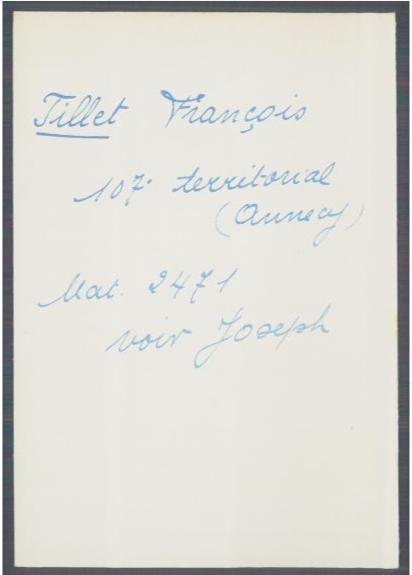 Tillet François
107e territorial
(Annecy)
Mat. 2471
voir Joseph